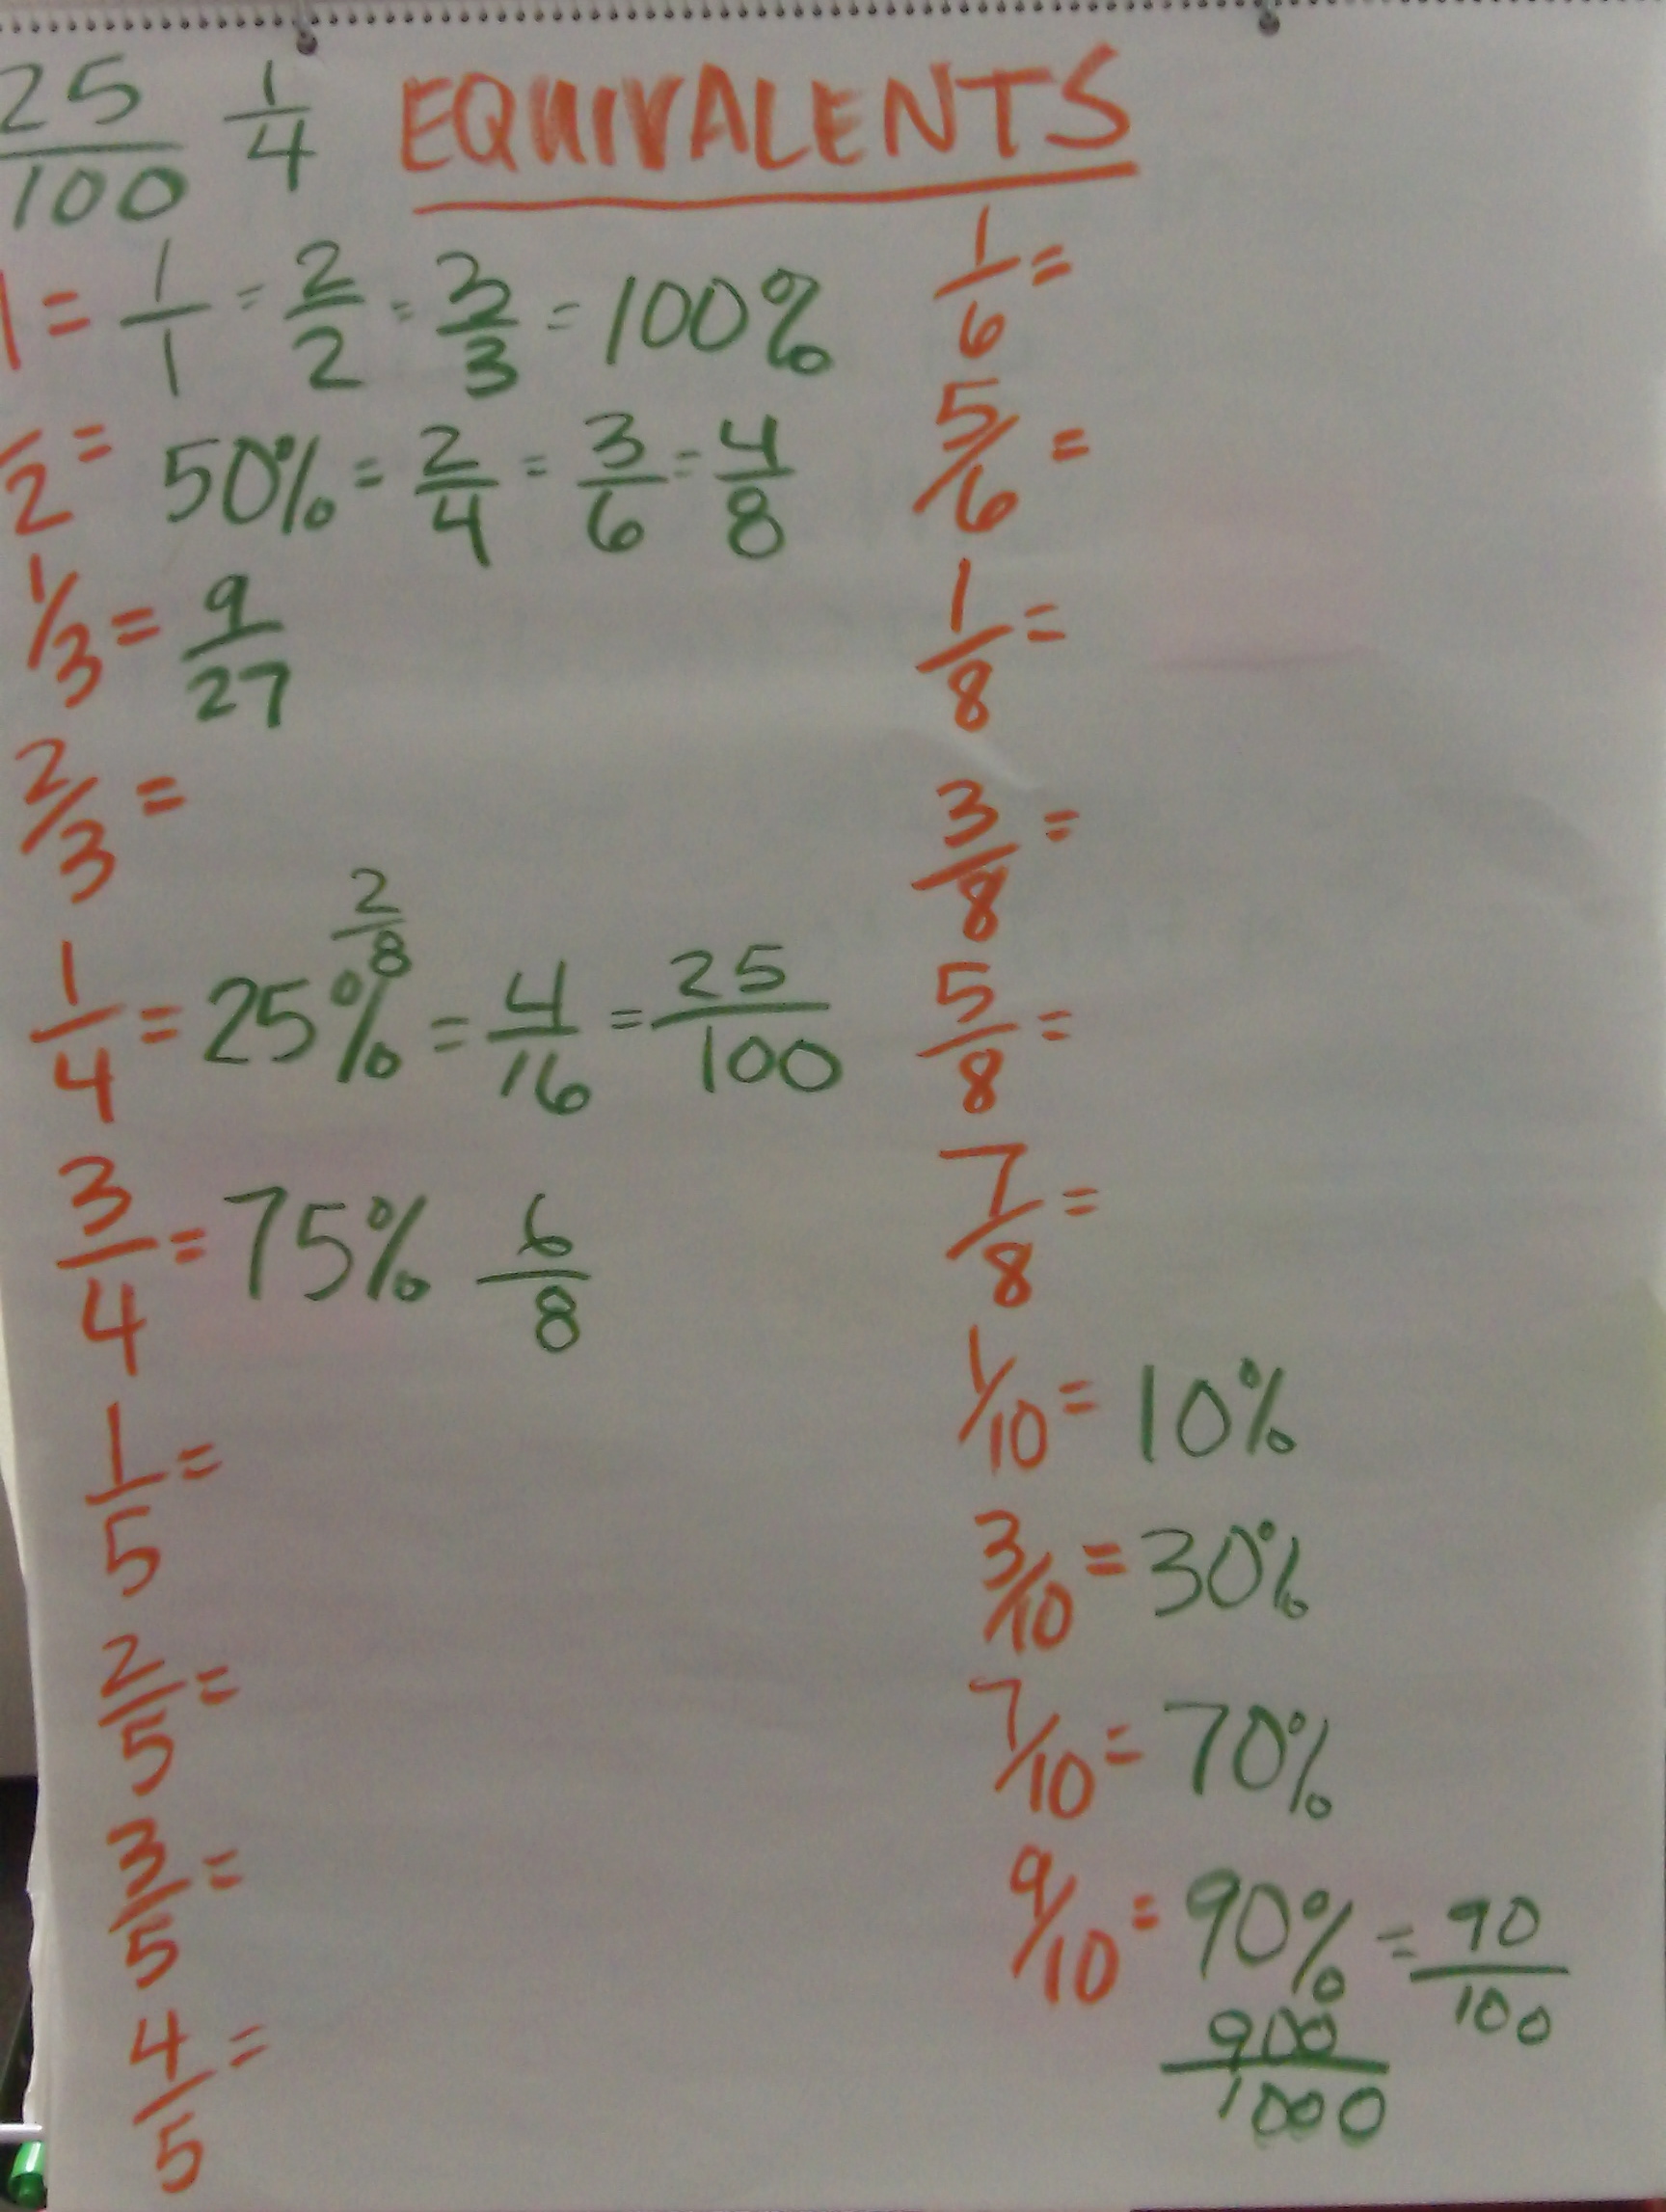 25/100 1/4 EQUIVALENTS
1 = 1/1 = 2/2 = 3/3 = 100%
/2 = 50% = 2/4 = 3/6 = 4/8
1/3 = 9/27
2/3 =
2/8
1/4 = 25% = 4/16 = 25/100
3/4 = 75% 6/8
1/5 =
2/5 =
3/5 =
4/5 =
1/6 =
5/6 =
1/8 =
3/8 =
5/8 =
7/8 =
1/10 = 10%
3/10 = 30%
7/10 = 70%
9/10 = 90% = 90/100
900/1000